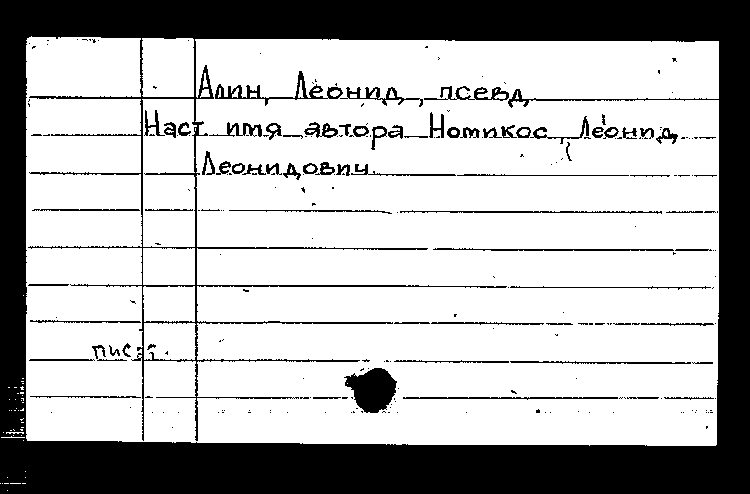 Алин, Леонид, псевд.
Наст имя автора Номикос, Леонид
Леонидович.